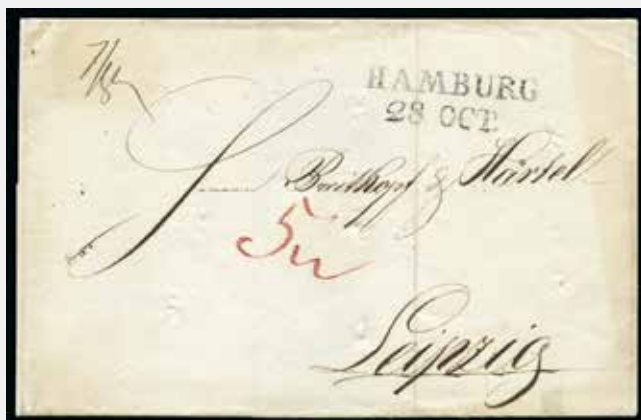 HAMBURG
28 OCT.
Breitkopf & Härtel
5
Leipzig